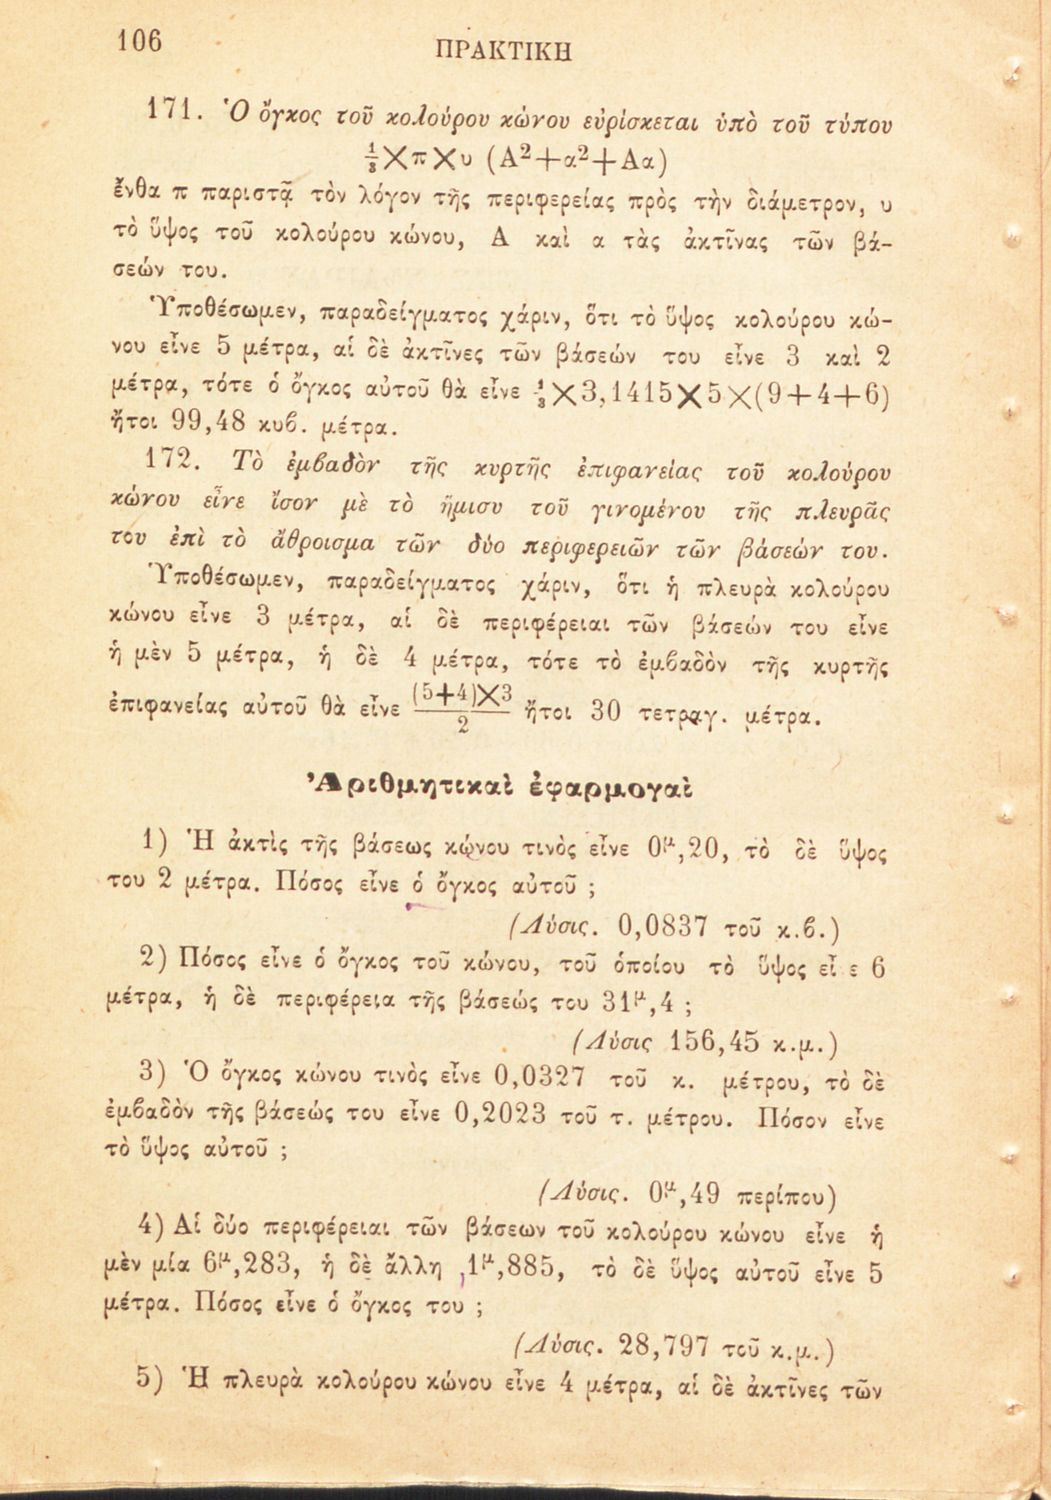 106
ΠΡΑΚΤΙΚΗ
171. Ὁ ὄγκος τοῦ κολούρου κώνου εὑρίσκεται ὑπὸ τοῦ τύπου
⅓×π×υ (Α²+α²+Αα)
ἔνθα π παριστᾷ τὸν λόγον τῆς περιφερείας πρὸς τὴν διάμετρον, υ
τὸ ὕψος τοῦ κολούρου κώνου, Α καὶ α τὰς ἀκτῖνας τῶν βά-
σεών του.
Ὑποθέσωμεν, παραδείγματος χάριν, ὅτι τὸ ὕψος κολούρου κώ-
νου εἶνε 5 μέτρα, αἱ δὲ ἀκτῖνες τῶν βάσεών του εἶνε 3 καὶ 2
μέτρα, τότε ὁ ὄγκος αὐτοῦ θὰ εἶνε ⅓×3,1415×5×(9+4+6)
ἤτοι 99,48 κυβ. μέτρα.
172. Τὸ ἐμβαδὸν τῆς κυρτῆς ἐπιφανείας τοῦ κολούρου
κώνου εἶνε ἴσον μὲ τὸ ἥμισυ τοῦ γινομένου τῆς πλευρᾶς
του ἐπὶ τὸ ἄθροισμα τῶν δύο περιφερειῶν τῶν βάσεών του.
Ὑποθέσωμεν, παραδείγματος χάριν, ὅτι ἡ πλευρὰ κολούρου
κώνου εἶνε 3 μέτρα, αἱ δὲ περιφέρειαι τῶν βάσεών του εἶνε
ἡ μὲν 5 μέτρα, ἡ δὲ 4 μέτρα, τότε τὸ ἐμβαδὸν τῆς κυρτῆς
ἐπιφανείας αὐτοῦ θὰ εἶνε (5+4)×3/2 ἤτοι 30 τετραγ. μέτρα.
Ἀριθμητικαὶ ἐφαρμογαὶ
1) Ἡ ἀκτὶς τῆς βάσεως κώνου τινὸς εἶνε 0μ,20, τὸ δὲ ὕψος
του 2 μέτρα. Πόσος εἶνε ὁ ὄγκος αὐτοῦ ;
(Λύσις. 0,0837 τοῦ κ.β.)
2) Πόσος εἶνε ὁ ὄγκος τοῦ κώνου, τοῦ ὁποίου τὸ ὕψος εἶ ε 6
μέτρα, ἡ δὲ περιφέρεια τῆς βάσεώς του 31μ,4 ;
(Λύσις 156,45 κ.μ.)
3) Ὁ ὄγκος κώνου τινὸς εἶνε 0,0327 τοῦ κ. μέτρου, τὸ δὲ
ἐμβαδὸν τῆς βάσεώς του εἶνε 0,2023 τοῦ τ. μέτρου. Πόσον εἶνε
τὸ ὕψος αὐτοῦ ;
(Λύσις. 0μ,49 περίπου)
4) Αἱ δύο περιφέρειαι τῶν βάσεων τοῦ κολούρου κώνου εἶνε ἡ
μὲν μία 6μ,283, ἡ δὲ ἄλλη 1μ,885, τὸ δὲ ὕψος αὐτοῦ εἶνε 5
μέτρα. Πόσος εἶνε ὁ ὄγκος του ;
(Λύσις. 28,797 τοῦ κ.μ.)
5) Ἡ πλευρὰ κολούρου κώνου εἶνε 4 μέτρα, αἱ δὲ ἀκτῖνες τῶν